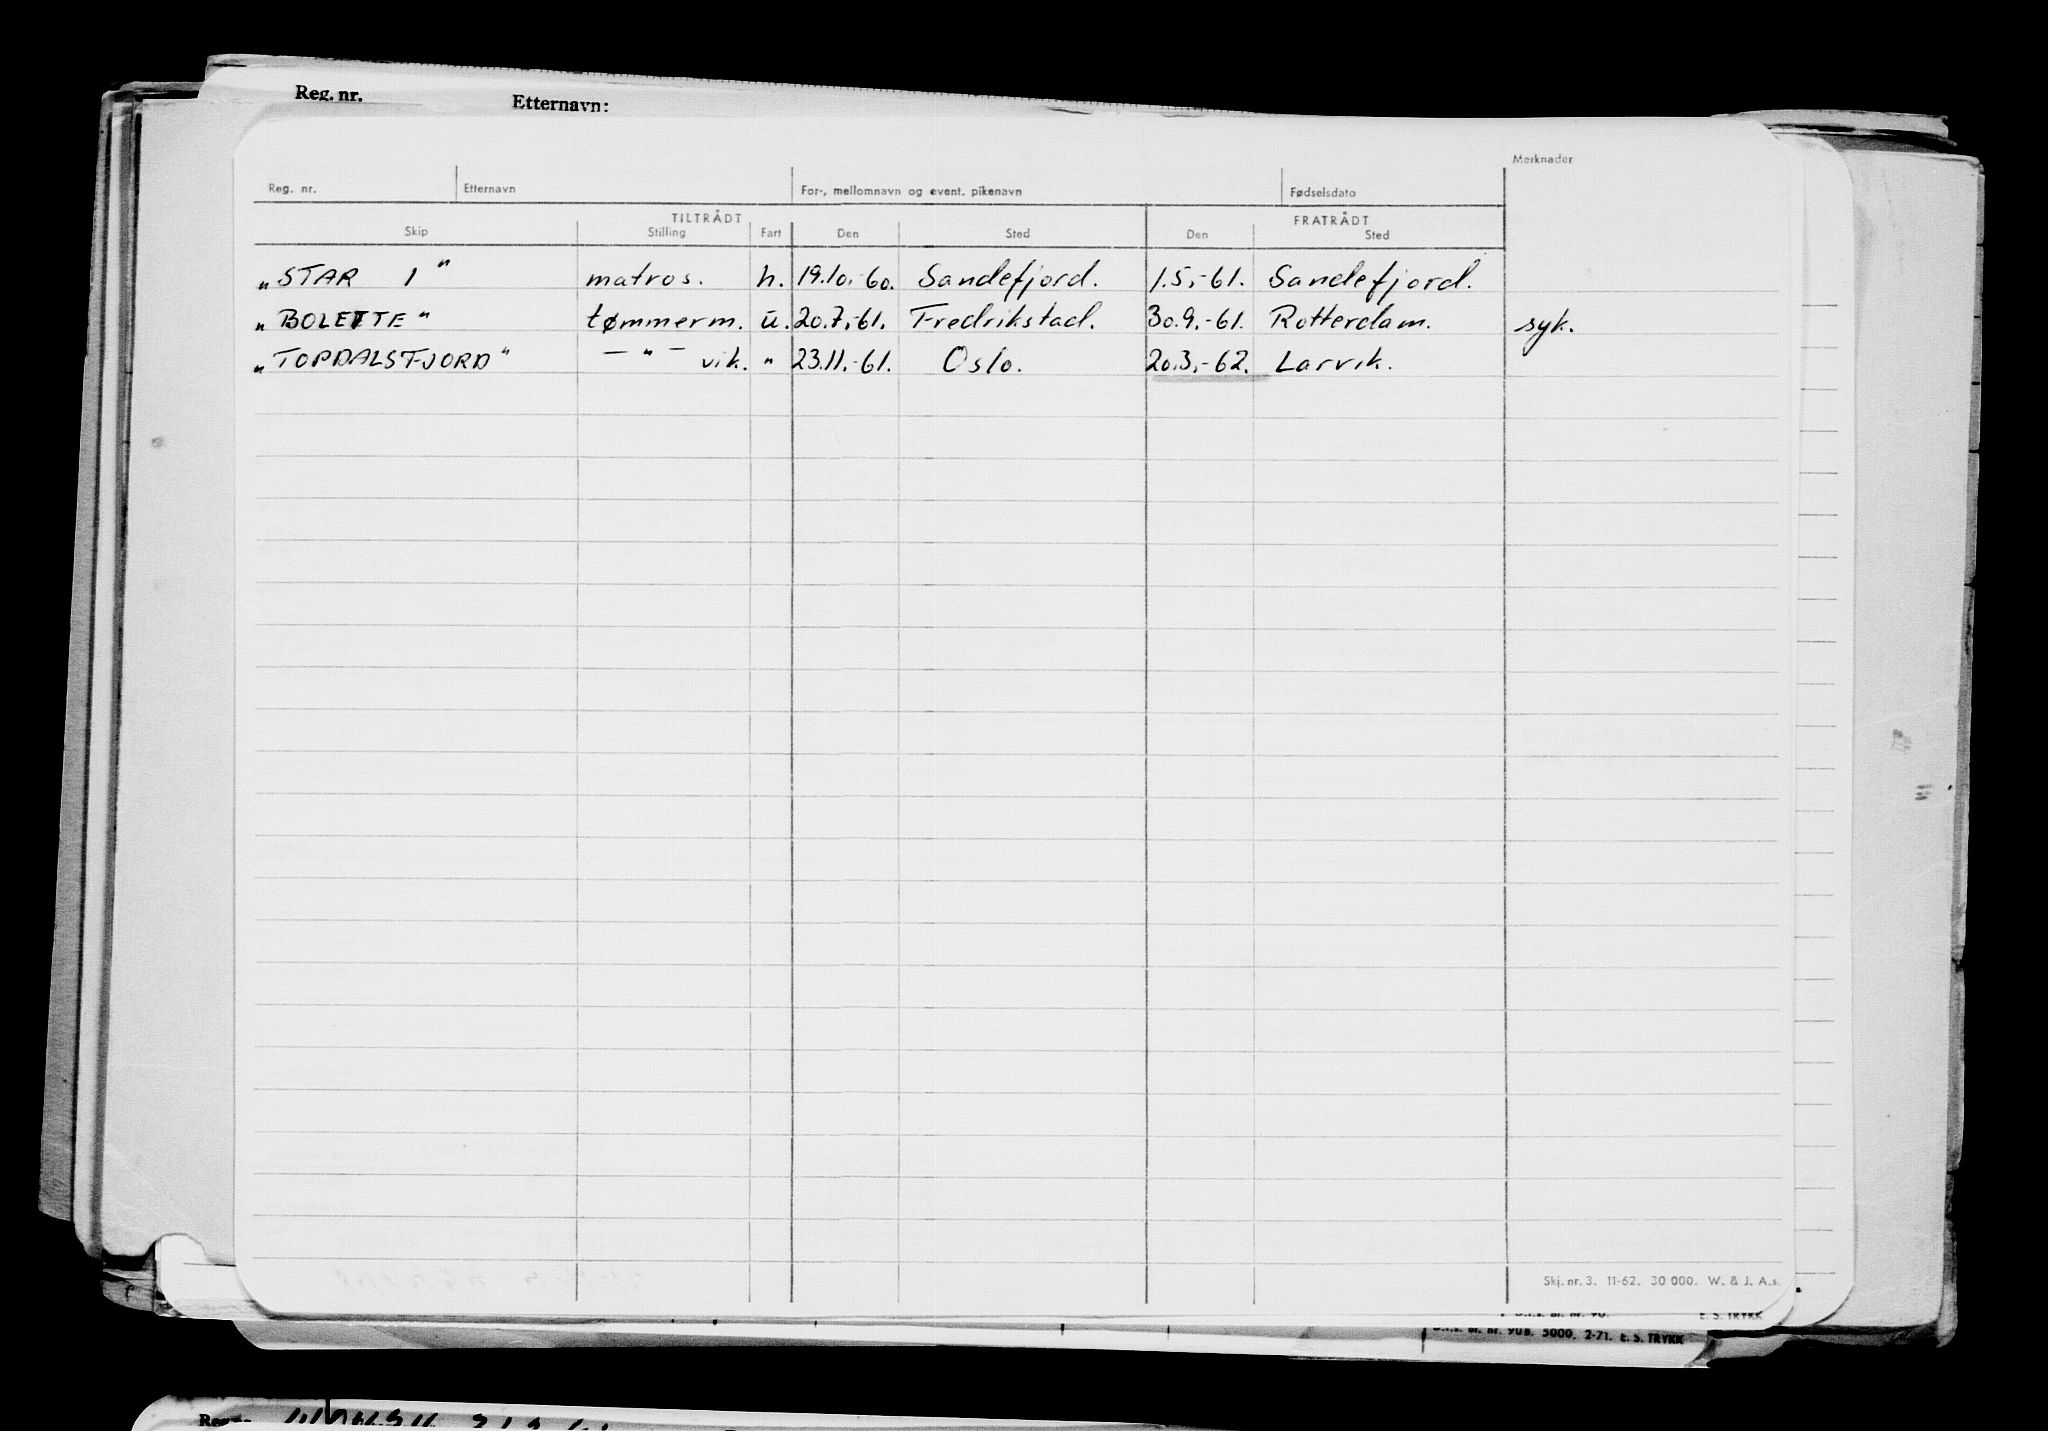 Reg. nr. Etternavn:
Merknader
Reg. nr. Etternavn For-, mellomnavn og event. pikenavn Fødselsdato
TILTRÅDT FRATRÅDT
Skip Stilling Fart Den Sted Den Sted
„STAR 1" matros. h. 19.10.-60. Sandefjord. 1.5.-61. Sandefjord.
„BOLETTE" tømmerm. u. 20.7.-61. Fredrikstad. 30.9.-61. Rotterdam. syk.
„TOPDALSFJORD" — " — vik. " 23.11.-61. Oslo. 20.3.-62. Larvik.
Skj. nr. 3. 11-62. 30 000. W. & J. A.s.
E. S. TRYKK
nr. 90B. 5000. 2-71. E. S. TRYKK